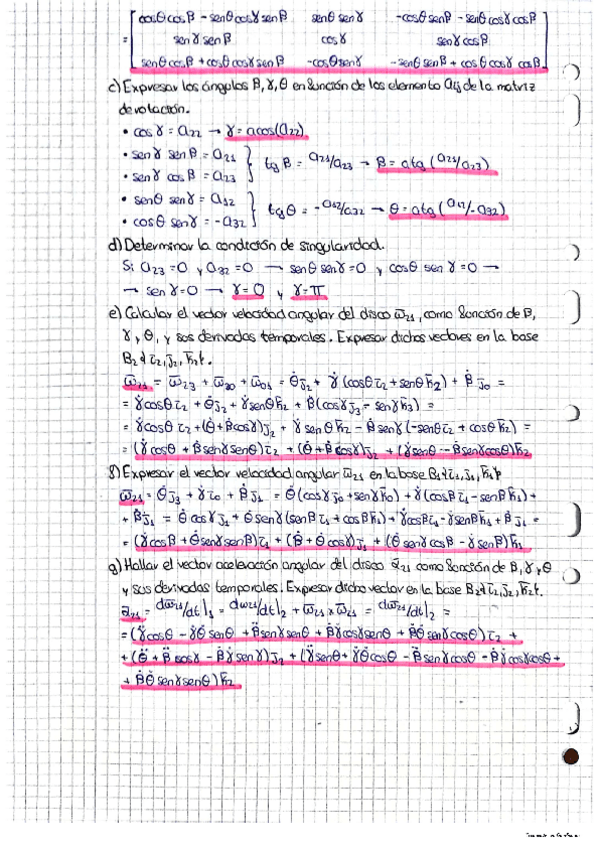 = [ cosθcosβ - senθcosγsenβ   senθ senγ   -cosθsenβ - senθcosγcosβ
senγ senβ   cosγ   senγcosβ
senθcosβ + cosθcosγsenβ   -cosθsenγ   -senθsenβ + cosθcosγ cosβ ]
c) Expresar los ángulos β, γ, θ en función de los elemento aij de la matriz
de rotación.
• cosγ = a22 → γ = acos(a22)
• senγ senβ = a21
• senγ cosβ = a23 } tgβ = a21/a23 → β = atg (a21/a23)
• senθ senγ = a12
• cosθ senγ = -a32 } tgθ = -a12/a32 → θ = atg (a12/-a32)
d) Determinar la condición de singularidad.
Si a23 = 0 y a32 = 0 → senθ senγ = 0 y cosθ senγ = 0 →
→ senγ = 0 → γ = 0 y γ = π
e) Calcular el vector velocidad angular del disco ω̄21, como función de β,
γ, θ, y sus derivadas temporales. Expresar dichos vectores en la base
B2 {ī2, j̄2, k̄2}.
ω̄21 = ω̄23 + ω̄30 + ω̄01 = θ̇j̄2 + γ̇ (cosθī2 + senθk̄2) + β̇ j̄0 =
= γ̇cosθī2 + θ̇j̄2 + γ̇senθk̄2 + β̇(cosγj̄3 - senγk̄3) =
= γ̇cosθ ī2 + (θ̇ + β̇cosγ)j̄2 + γ̇ senθk̄2 - β̇senγ (-senθī2 + cosθk̄2) =
= (γ̇cosθ + β̇senγsenθ)ī2 + (θ̇ + β̇cosγ)j̄2 + (γ̇senθ - β̇senγcosθ)k̄2
f) Expresar el vector velocidad angular ω̄21 en la base B1 {ī1, j̄1, k̄1}
ω̄21 = θ̇j̄3 + γ̇ī0 + β̇j̄1 = θ̇(cosγj̄0 + senγk̄0) + γ̇(cosβī1 - senβk̄1) +
+ β̇j̄1 = θ̇cosγj̄1 + θ̇senγ(senβī1 + cosβk̄1) + γ̇cosβī1 - γ̇senβk̄1 + β̇j̄1 =
= (γ̇cosβ + θ̇senγsenβ)ī1 + (β̇ + θ̇cosγ)j̄1 + (θ̇senγcosβ - γ̇senβ)k̄1
g) Hallar el vector aceleración angular del disco ᾱ21 como función de β, γ, θ
y sus derivadas temporales. Expresar dicho vector en la base B2 {ī2, j̄2, k̄2}.
ᾱ21 = dω̄21/dt|1 = dω̄21/dt|2 + ω̄21 x ω̄21 = dω̄21/dt|2 =
= (γ̈cosθ - γ̇θ̇senθ + β̈senγsenθ + β̇γ̇cosγsenθ + β̇θ̇senγcosθ)ī2 +
+ (θ̈ + β̈cosγ - β̇γ̇senγ)j̄2 + (γ̈senθ + γ̇θ̇cosθ - β̈senγcosθ - β̇γ̇cosγcosθ +
+ β̇θ̇senγsenθ)k̄2